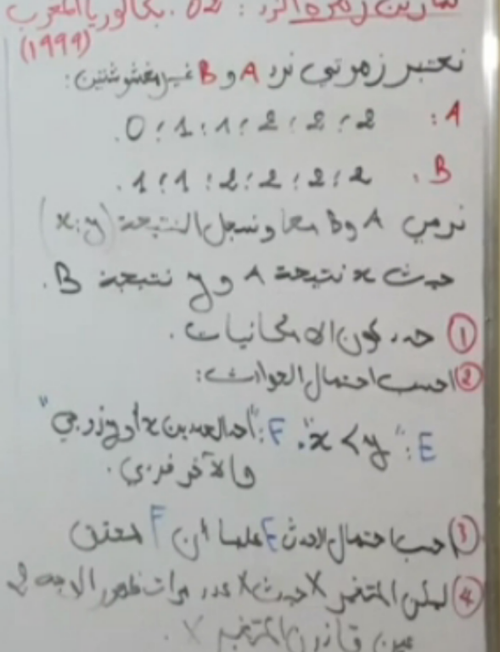 تمارين زهرة النرد: 02. بكالوريا المغرب
(1999)
نعتبر زهرتي نرد A و B غير مغشوشتين:
A: 2 ; 2 ; 2 ; 1 ; 1 ; 0.
B. 2 ; 2 ; 2 ; 2 ; 1 ; 1.
نرمي A و B معا و نسجل النتيجة (x ; y)
حيث x نتيجة A و y نتيجة B.
① حدد كون الامكانيات.
② احسب احتمال الحوادث:
E: "x < y". F: "احد العددين x أو y زوجي
والآخر فردي."
③ احسب احتمال الحدث E علما أن F محقق
④ ليكن المتغير X حيث X عدد مرات ظهور الاوجه 2
عين قانون المتغير X.